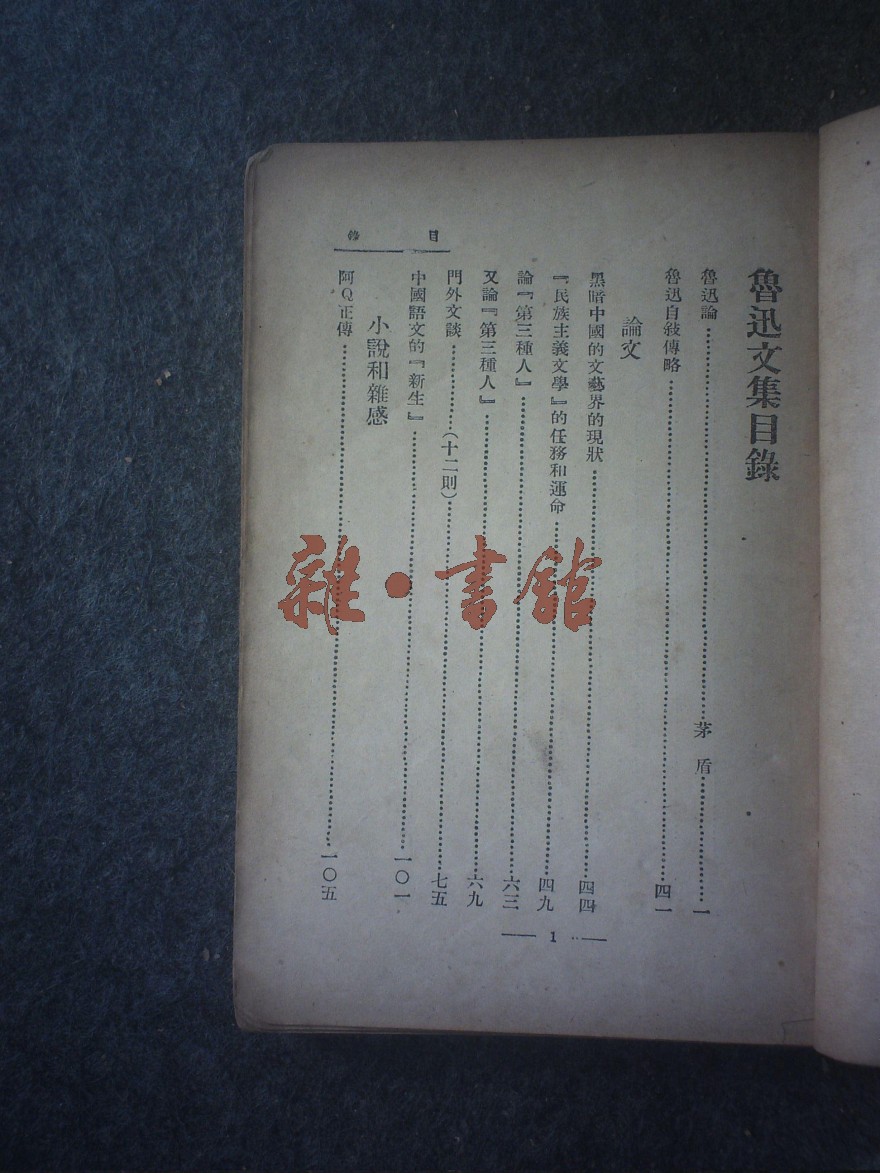 魯迅文集目錄
魯迅論 茅盾 一
魯迅自敍傳略 四一
論文
黑暗中國的文藝界的現狀 四四
『民族主義文學』的任務和運命 四九
論『第三種人』 六三
又論『第三種人』 六九
門外文談 (十二則) 七五
中國語文的『新生』 一〇一
小說和雜感
阿Q正傳 一〇五
目錄
1
雜·書館